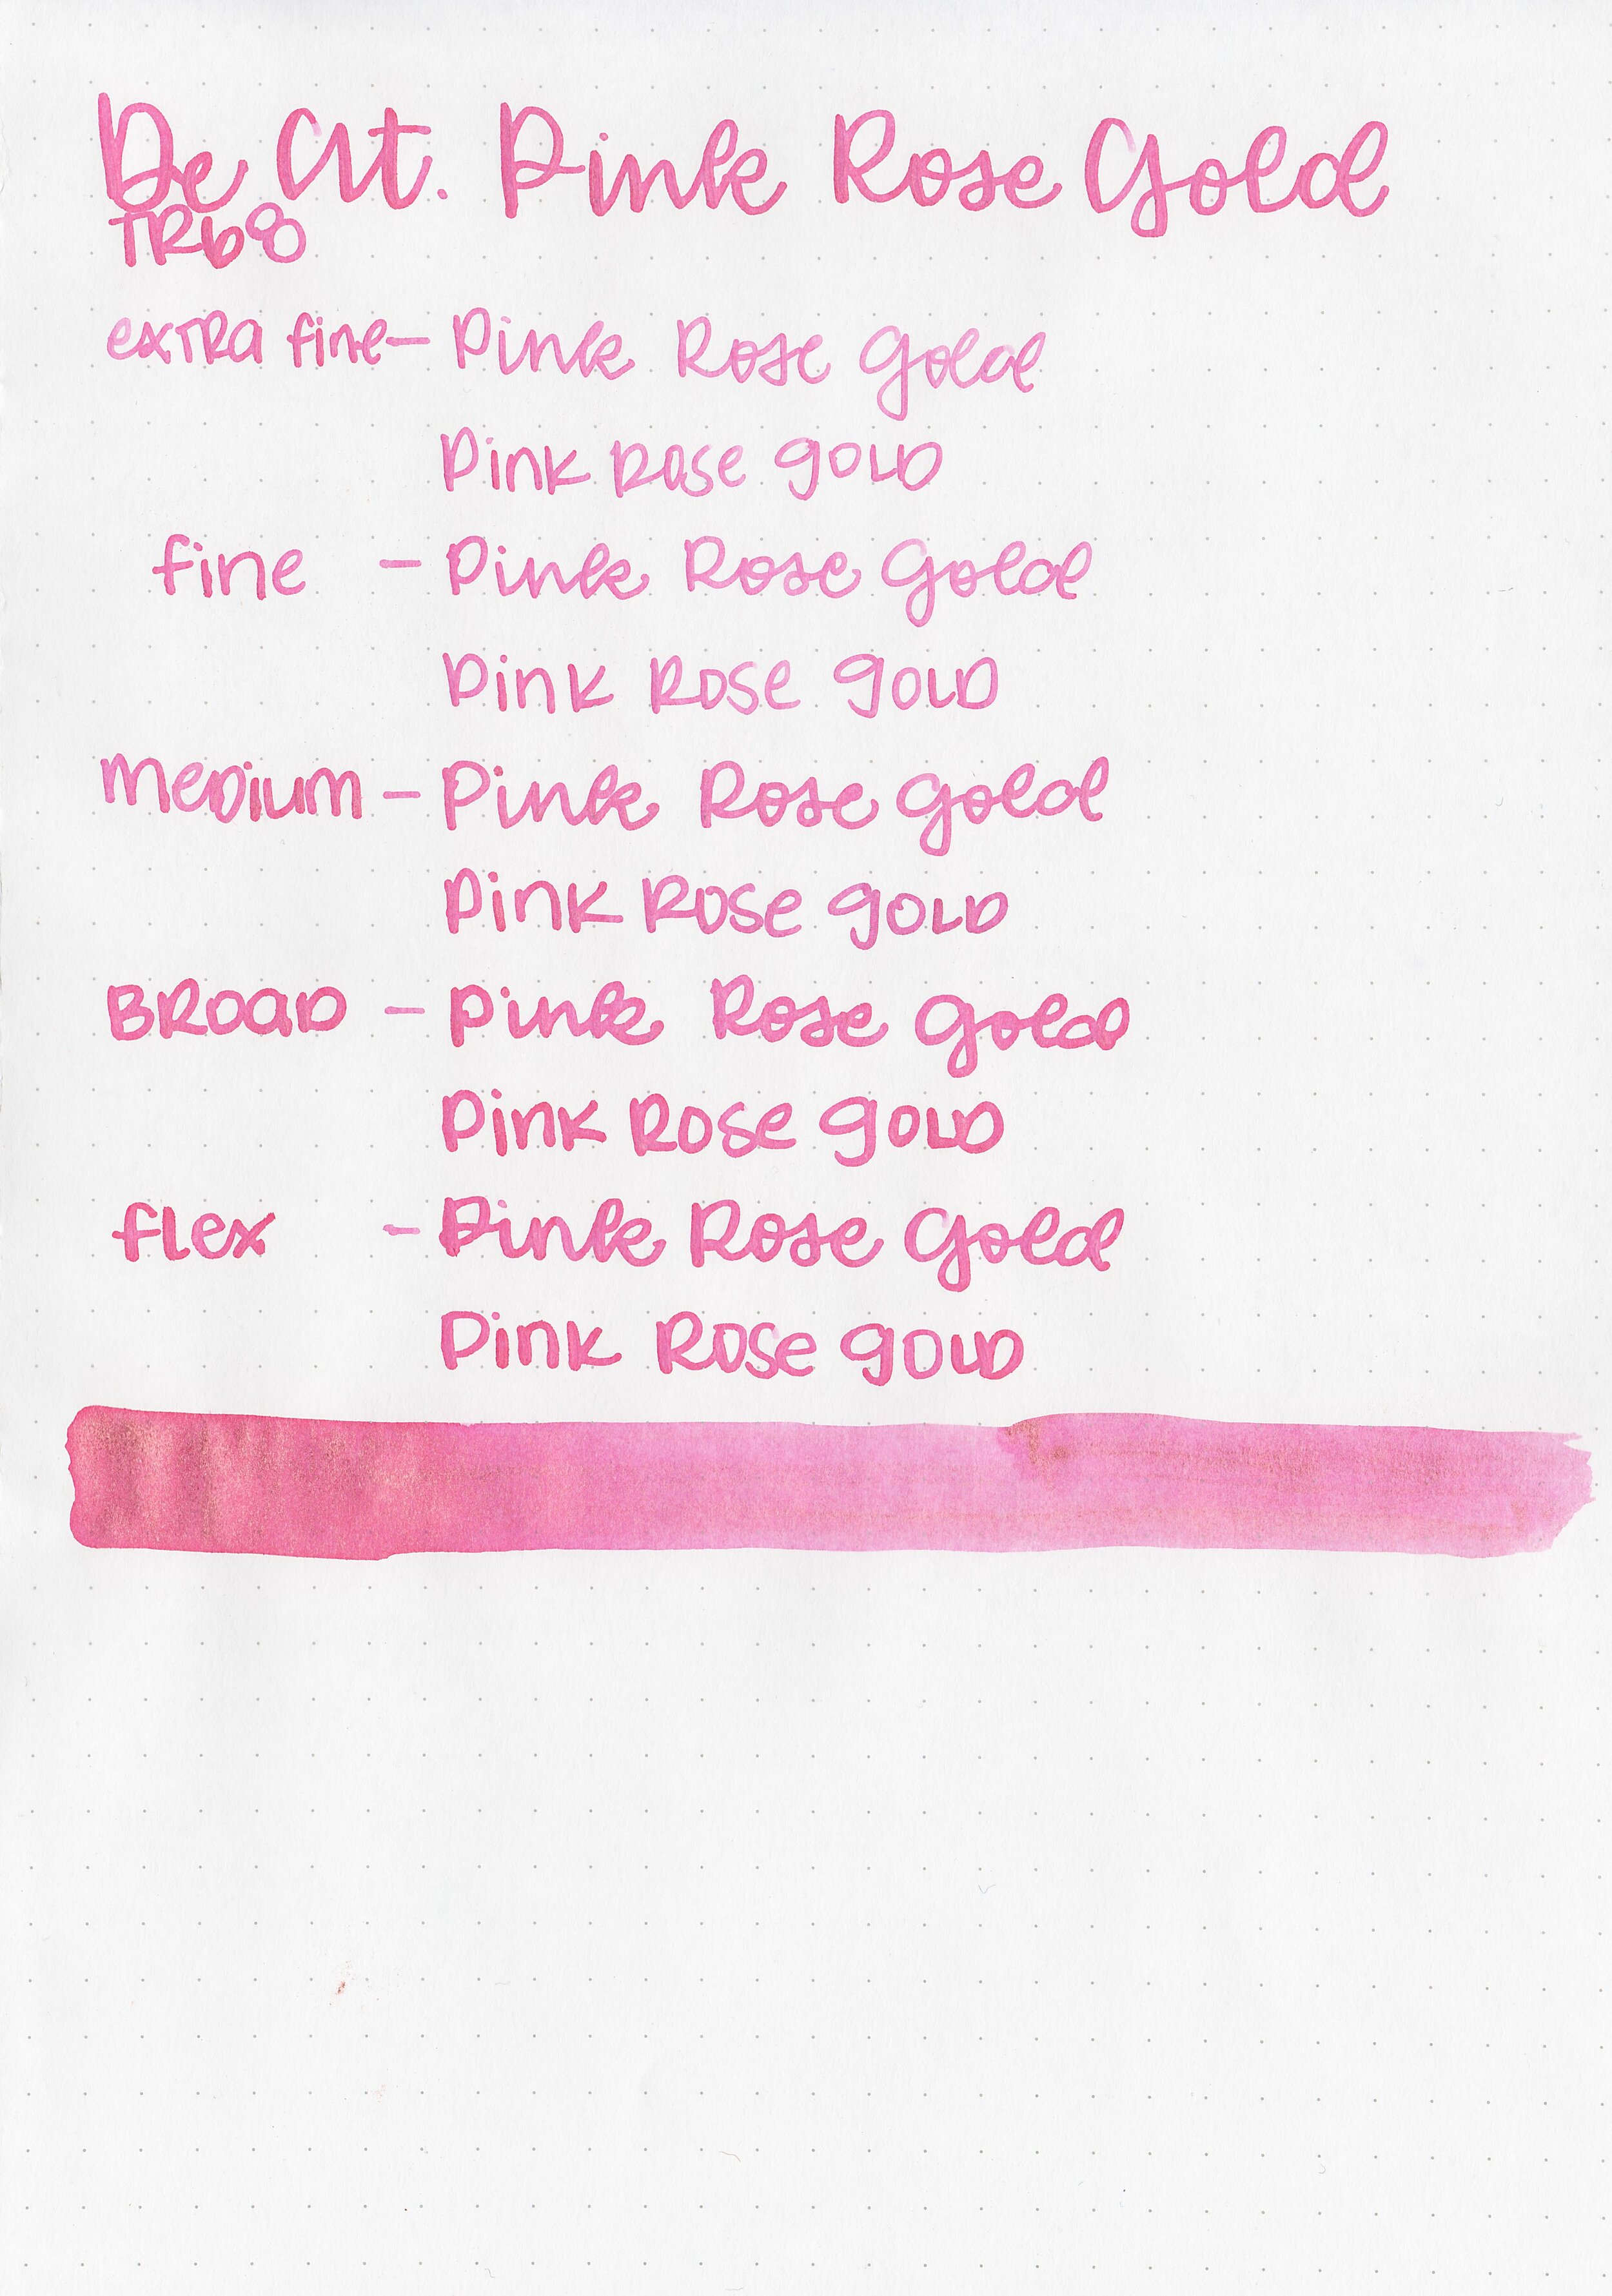 De At. Pink Rose Gold
TR68
extra fine - Pink Rose Gold
Pink Rose Gold
fine - Pink Rose Gold
Pink Rose Gold
medium - Pink Rose Gold
Pink Rose Gold
Broad - Pink Rose Gold
Pink Rose Gold
flex - Pink Rose Gold
Pink Rose Gold